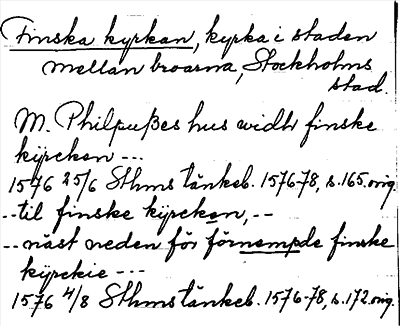 Finska kyrkan, kyrka i staden
mellan broarna, Stockholms
stad.
M. Philpußes hus widh finske
kijrckan ---
1576 25/6 Sthms tänkeb. 1576-78, s. 165. orig.
-- til finske kijrckon, --
-- näst neden för förnempde finske
kijrckie ---
1576 4/8 Sthms tänkeb. 1576-78, s. 172. orig.